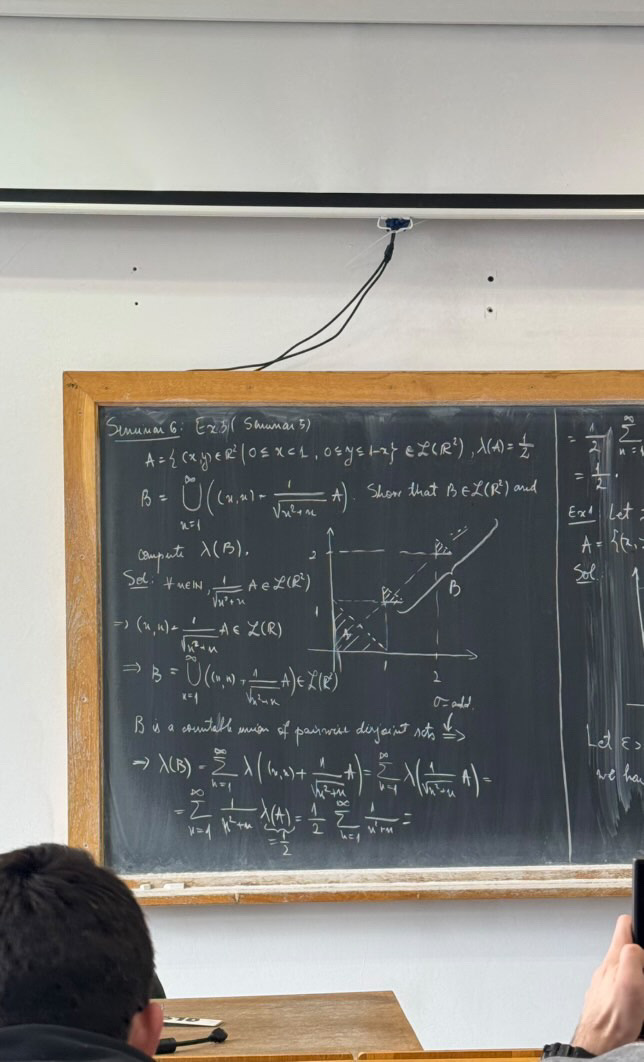 Seminar 6: Ex 3 (Seminar 5)
A = {(x,y) ∈ ℝ² | 0 ≤ x ≤ 1, 0 ≤ y ≤ 1-x} ∈ ℒ(ℝ²), λ(A) = 1/2
B = ⋃_{n=1}^{∞} ((n,n) + 1/√(n²+n) A). Show that B ∈ ℒ(ℝ²) and
compute λ(B).
Sol: ∀ n ∈ ℕ, 1/√(n²+n) A ∈ ℒ(ℝ²)
⇒ (n,n) + 1/√(n²+n) A ∈ ℒ(ℝ)
⇒ B = ⋃_{n=1}^{∞} ((n,n) + 1/√(n²+n) A) ∈ ℒ(ℝ²)
2
1
A
1
2
B
σ-add.
B is a countable union of pairwise disjoint sets ⇒
⇒ λ(B) = ∑_{n=1}^{∞} λ((n,n) + 1/√(n²+n) A) = ∑_{n=1}^{∞} λ(1/√(n²+n) A) =
= ∑_{n=1}^{∞} 1/(n²+n) λ(A) = 1/2 ∑_{n=1}^{∞} 1/(n²+n) =
= 1/2
= 1/2 ∑_{n=1}^{∞}
= 1/2.
Ex 1 Let
A = {(x,
Sol:
Let ε >
we hav